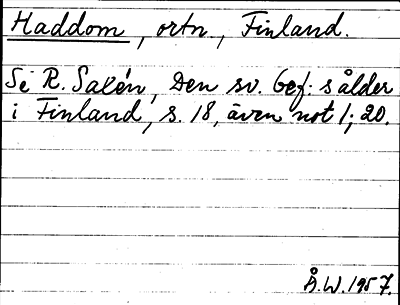 Haddom, ortn., Finland.
Se R. Saxén, Den sv. bef:s ålder
i Finland, s. 18, även not 1; 20.
Å.W. 1957.